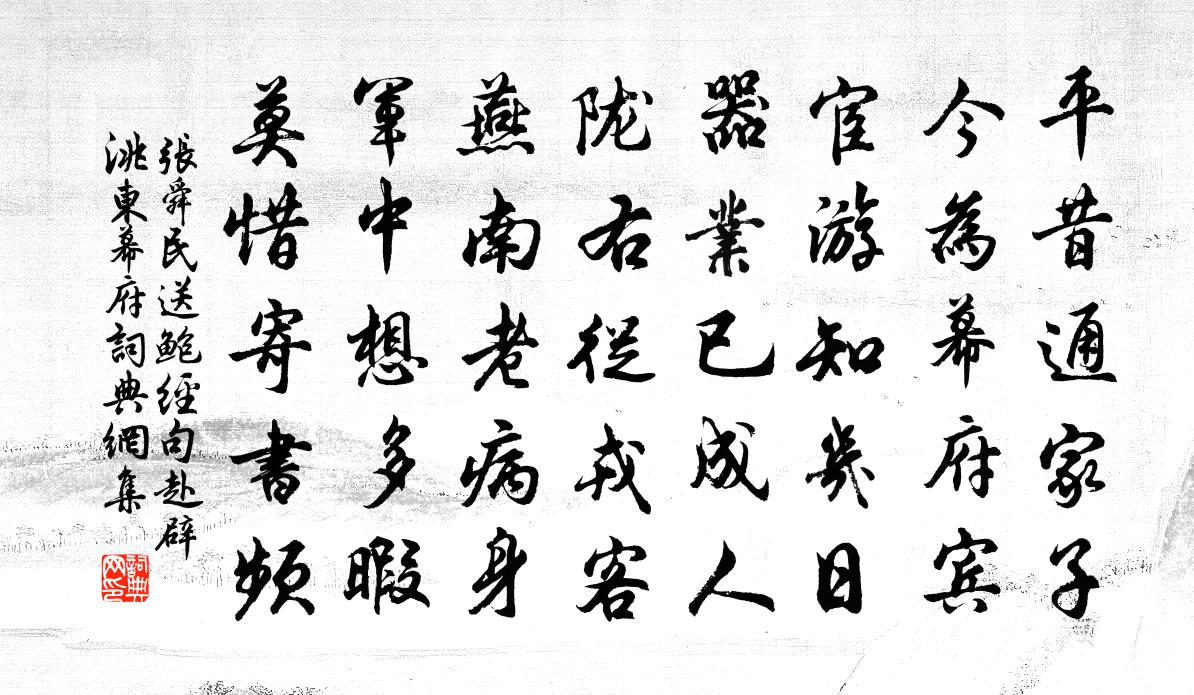 平昔通家子
今為幕府宾
宦游知幾日
器業已成人
陇右從戎客
燕南老病身
軍中想多暇
莫惜寄書頻
張舜民送鮑經句赴辟
洮東幕府詞典網集
詞典网印